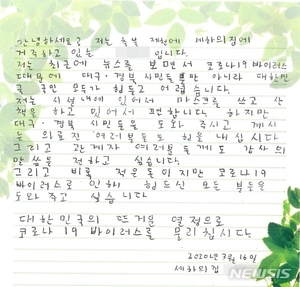 안녕하세요? 저는 충북 제천에 세하의집에
거주하고 있는 입니다.
저는 최근에 뉴스를 보면서 코로나19 바이러스
때문에 대구·경북 시민들뿐만 아니라 대한민
국 국민 모두가 힘들고 어렵습니다.
저는 시설내에 있어서 마스크를 쓰고 산
책을 하고 있어서 편합니다. 하지만
대구·경북 시민들을 도와 주시고 계시
는 의료진 여러분들도 힘을 내십시오.
그리고 관계자 여러분들께도 감사의
말씀을 전하고 싶습니다.
그리고 비록 적은 돈이지만 코로나19
바이러스로 인해 힘드신 모든 분들을
도와 주고 싶습니다
대한민국의 뜨거운 열정으로
코로나19 바이러스를 물리칩시다.
2020년 3월 16일
세하의집
NEWSIS